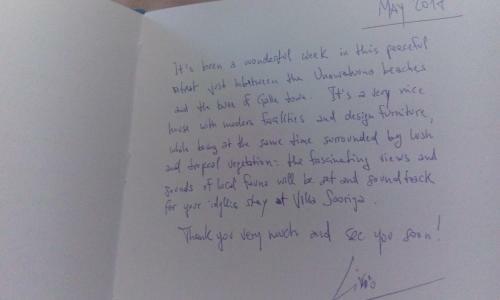 MAY 2018
It's been a wonderful week in this peaceful
street just between the Unawatuna beaches
and the town of Galle town. It's a very nice
house with modern facilities and design furniture,
while being at the same time surrounded by lush
and tropical vegetation: the fascinating views and
sounds of local fauna will be set and soundtrack
for your idyllic stay at Villa Sooriya.
Thank you very much and see you soon!
Livio